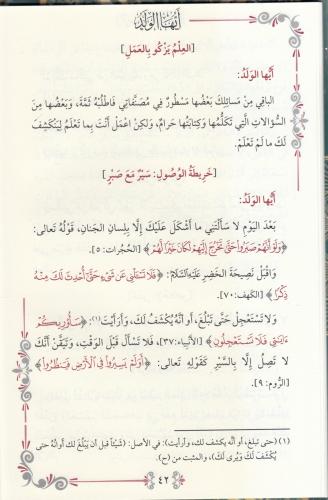 أيها الولد
[العِلْمُ يَزْكُو بِالعَمَلِ]
أَيُّها الوَلَدُ:
الباقِي مِنْ مَسائِلِكَ بَعْضُها مَسْطُورٌ فِي مُصَنَّفاتِي فَاطْلُبْهُ ثَمَّةَ، وَبَعْضُها مِنَ
السُّؤَالاتِ الَّتِي تَكَلُّمُها وَكِتابَتُها حَرامٌ، وَلكِنْ اعْمَلْ أَنْتَ بِما تَعْلَمُ لِيَنْكَشِفَ
لَكَ ما لَمْ تَعْلَمْ.
[خَرِيطَةُ الوُصُولِ: سَيْرٌ مَعَ صَبْرٍ]
أَيُّها الوَلَدُ:
بَعْدَ اليَوْمِ لا سَأَلْتَنِي ما أَشْكَلَ عَلَيْكَ إِلَّا بِلِسانِ الجَنانِ، قَوْلُهُ تَعالى:
﴿وَلَوْ أَنَّهُمْ صَبَرُوا حَتَّىٰ تَخْرُجَ إِلَيْهِمْ لَكَانَ خَيْرًا لَّهُمْ﴾ [الحُجُرات: ٥].
وَاقْبَلْ نَصِيحَةَ الخَضِرِ عَلَيْهِ السَّلامُ: ﴿فَلَا تَسْـَٔلْنِي عَن شَيْءٍ حَتَّىٰ أُحْدِثَ لَكَ مِنْهُ
ذِكْرًا﴾ [الكهف:٧٠].
وَلا تَسْتَعْجِلْ حَتَّى تَبْلُغَ، أَوَ أَنَّهُ يُكْشَفُ لَكَ، وَأَرَأَيْتَ(١): ﴿سَأُو۟رِيكُمْ
ءَايَـٰتِي فَلَا تَسْتَعْجِلُونِ﴾ [الأنبياء:٣٧]، فَلا تَسْأَلْ قَبْلَ الوَقْتِ، وَتَيَقَّنْ أَنَّكَ
لا تَصِلُ إِلَّا بِالسَّيْرِ كَقَوْلِهِ تَعالى: ﴿أَوَلَمْ يَسِيرُوا فِي ٱلْأَرْضِ فَيَنظُرُوا﴾
[الرُّوم:٩].
(١) (حتى تبلغ، أو أنَّه يكشف لك، وأرأيت): في الأصل: (شَيْئاً قبل أن يَبْلُغَ لك أو أنَّهُ حتى
يُكْشَفَ لكَ وَيُرى لكَ)، والمثبت من (ج).
٤٢